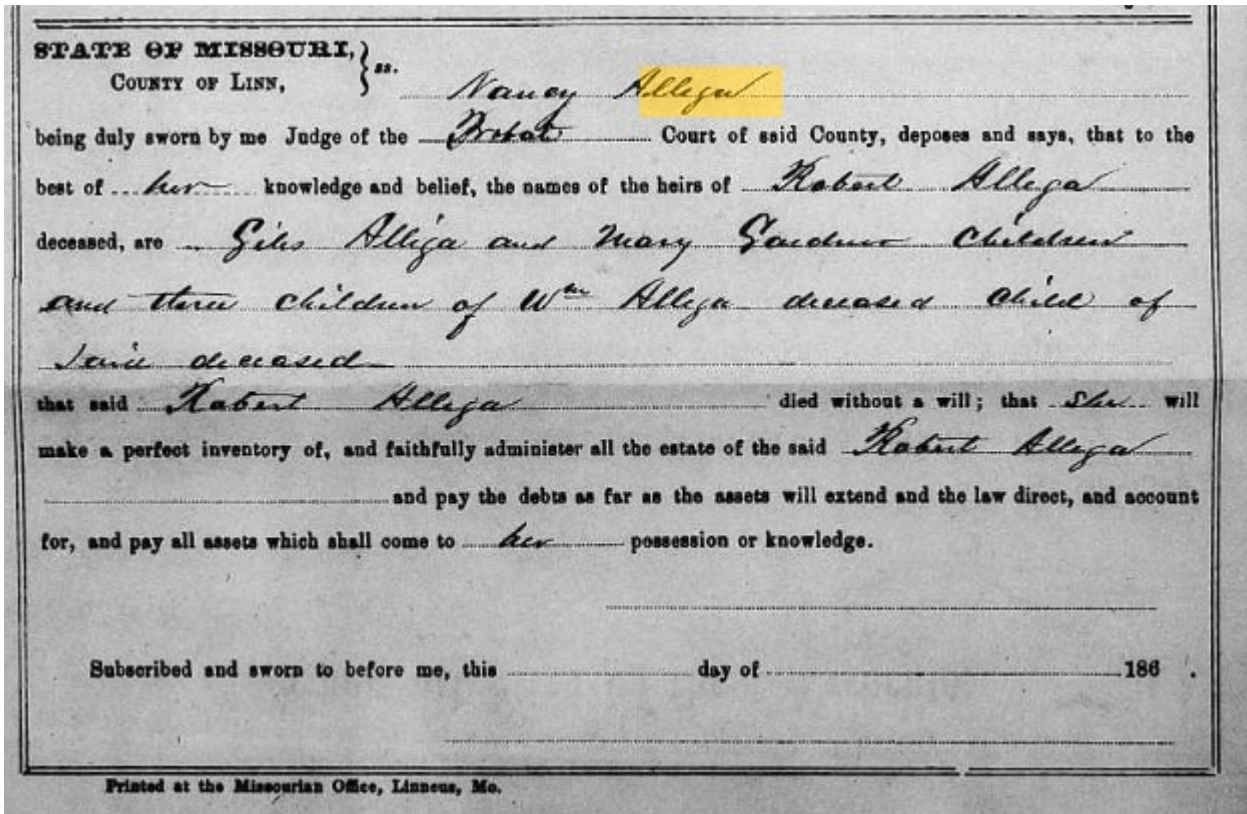 STATE OF MISSOURI,
COUNTY OF LINN, } ss. Nancy Allega
being duly sworn by me Judge of the Probat Court of said County, deposes and says, that to the
best of her knowledge and belief, the names of the heirs of Robert Allega
deceased, are Giles Alliga and Mary Gardner Children
and three children of Wm Allega deceased child of
said deceased
that said Robert Allega died without a will; that She will
make a perfect inventory of, and faithfully administer all the estate of the said Robert Allega
and pay the debts as far as the assets will extend and the law direct, and account
for, and pay all assets which shall come to her possession or knowledge.
Subscribed and sworn to before me, this day of 186 .
Printed at the Missourian Office, Linneus, Mo.